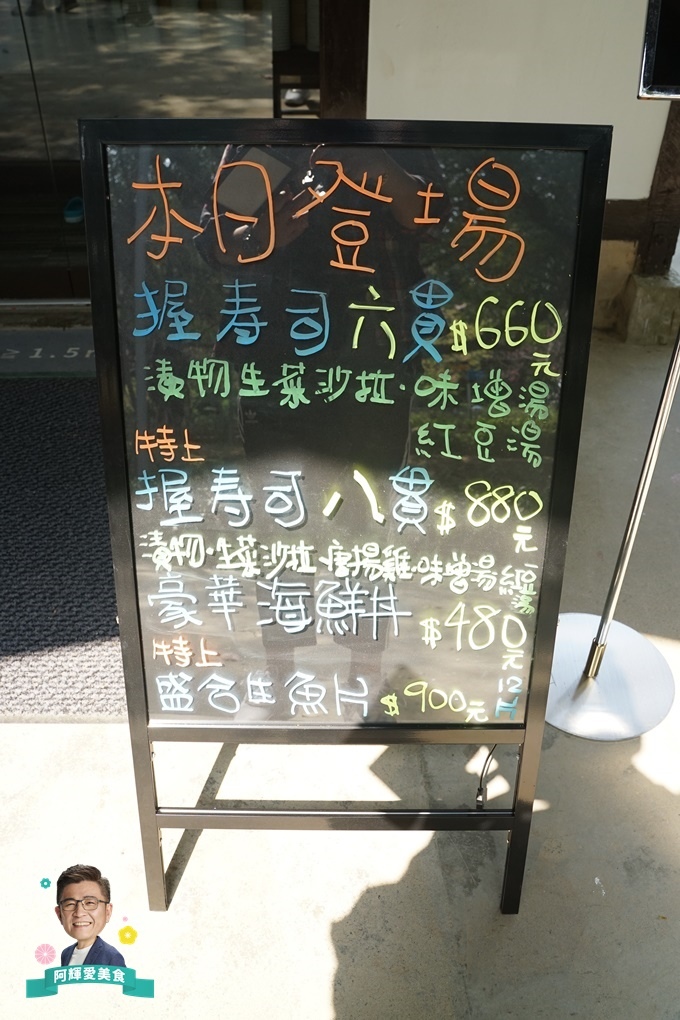 本日登場
握寿司六貫$660元
漬物生菜沙拉·味增湯
紅豆湯
特上
握寿司八貫$880元
漬物·生菜沙拉·唐揚雞·味增湯紅豆湯
豪華海鮮丼$480元
特上
盛合生魚片$900元12片
≥1.5m
阿輝愛美食